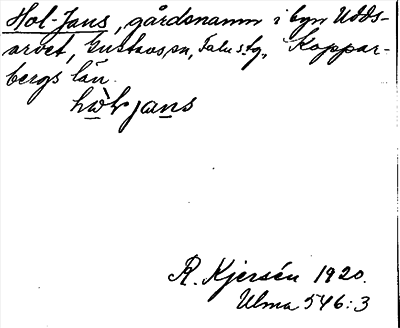 Hol-Jans, gårdsnamn i byn Udds-
arvet, Gustavs sn, Falu stg, Koppar-
bergs län.
jans
R. Kjersén 1920.
Ulma 546:3